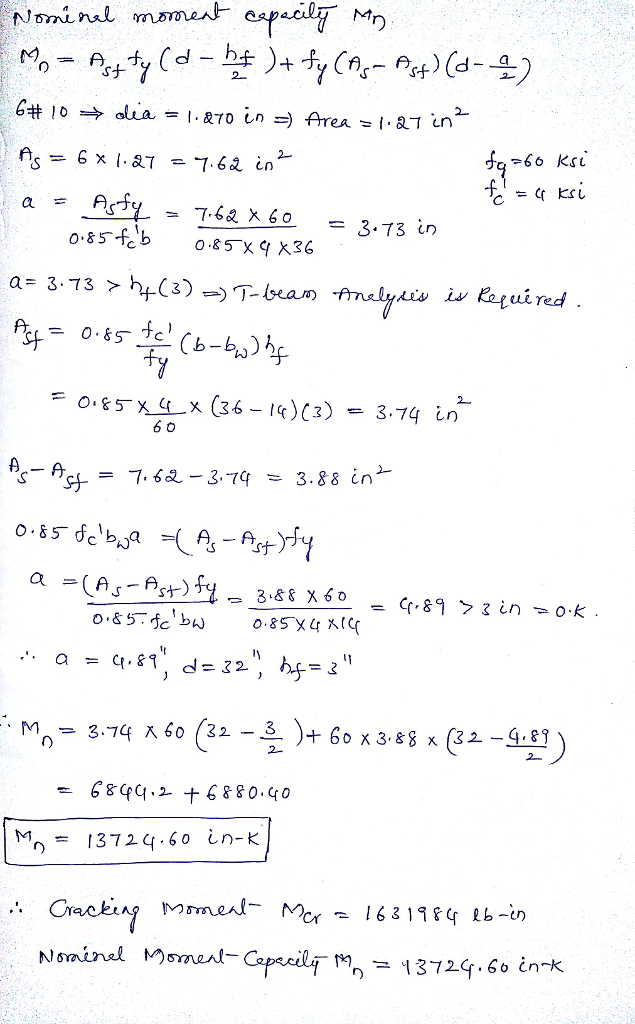 Nominal moment capacity Mn
Mn = Asf fy (d - hf/2) + fy (As - Asf) (d - a/2)
6# 10 ⇒ dia = 1.270 in ⇒ Area = 1.27 in²
As = 6 x 1.27 = 7.62 in²
fy = 60 ksi
fc' = 4 ksi
a = As fy / 0.85 fc'b = 7.62 x 60 / 0.85 x 4 x 36 = 3.73 in
a = 3.73 > hf (3) ⇒ T-beam Analysis is Required.
Asf = 0.85 fc'/fy (b - bw) hf
= 0.85 x 4/60 x (36 - 14) (3) = 3.74 in²
As - Asf = 7.62 - 3.74 = 3.88 in²
0.85 fc'bwa = (As - Asf) fy
a = (As - Asf) fy / 0.85. fc'bw = 3.88 x 60 / 0.85 x 4 x 14 = 4.89 > 3 in = O.K.
∴ a = 4.89", d = 32", hf = 3"
∴ Mn = 3.74 x 60 (32 - 3/2) + 60 x 3.88 x (32 - 4.89/2)
= 6844.2 + 6880.40
Mn = 13724.60 in-k
∴ Cracking Moment Mcr = 1631984 lb-in
Nominal Moment Capacity Mn = 13724.60 in-k